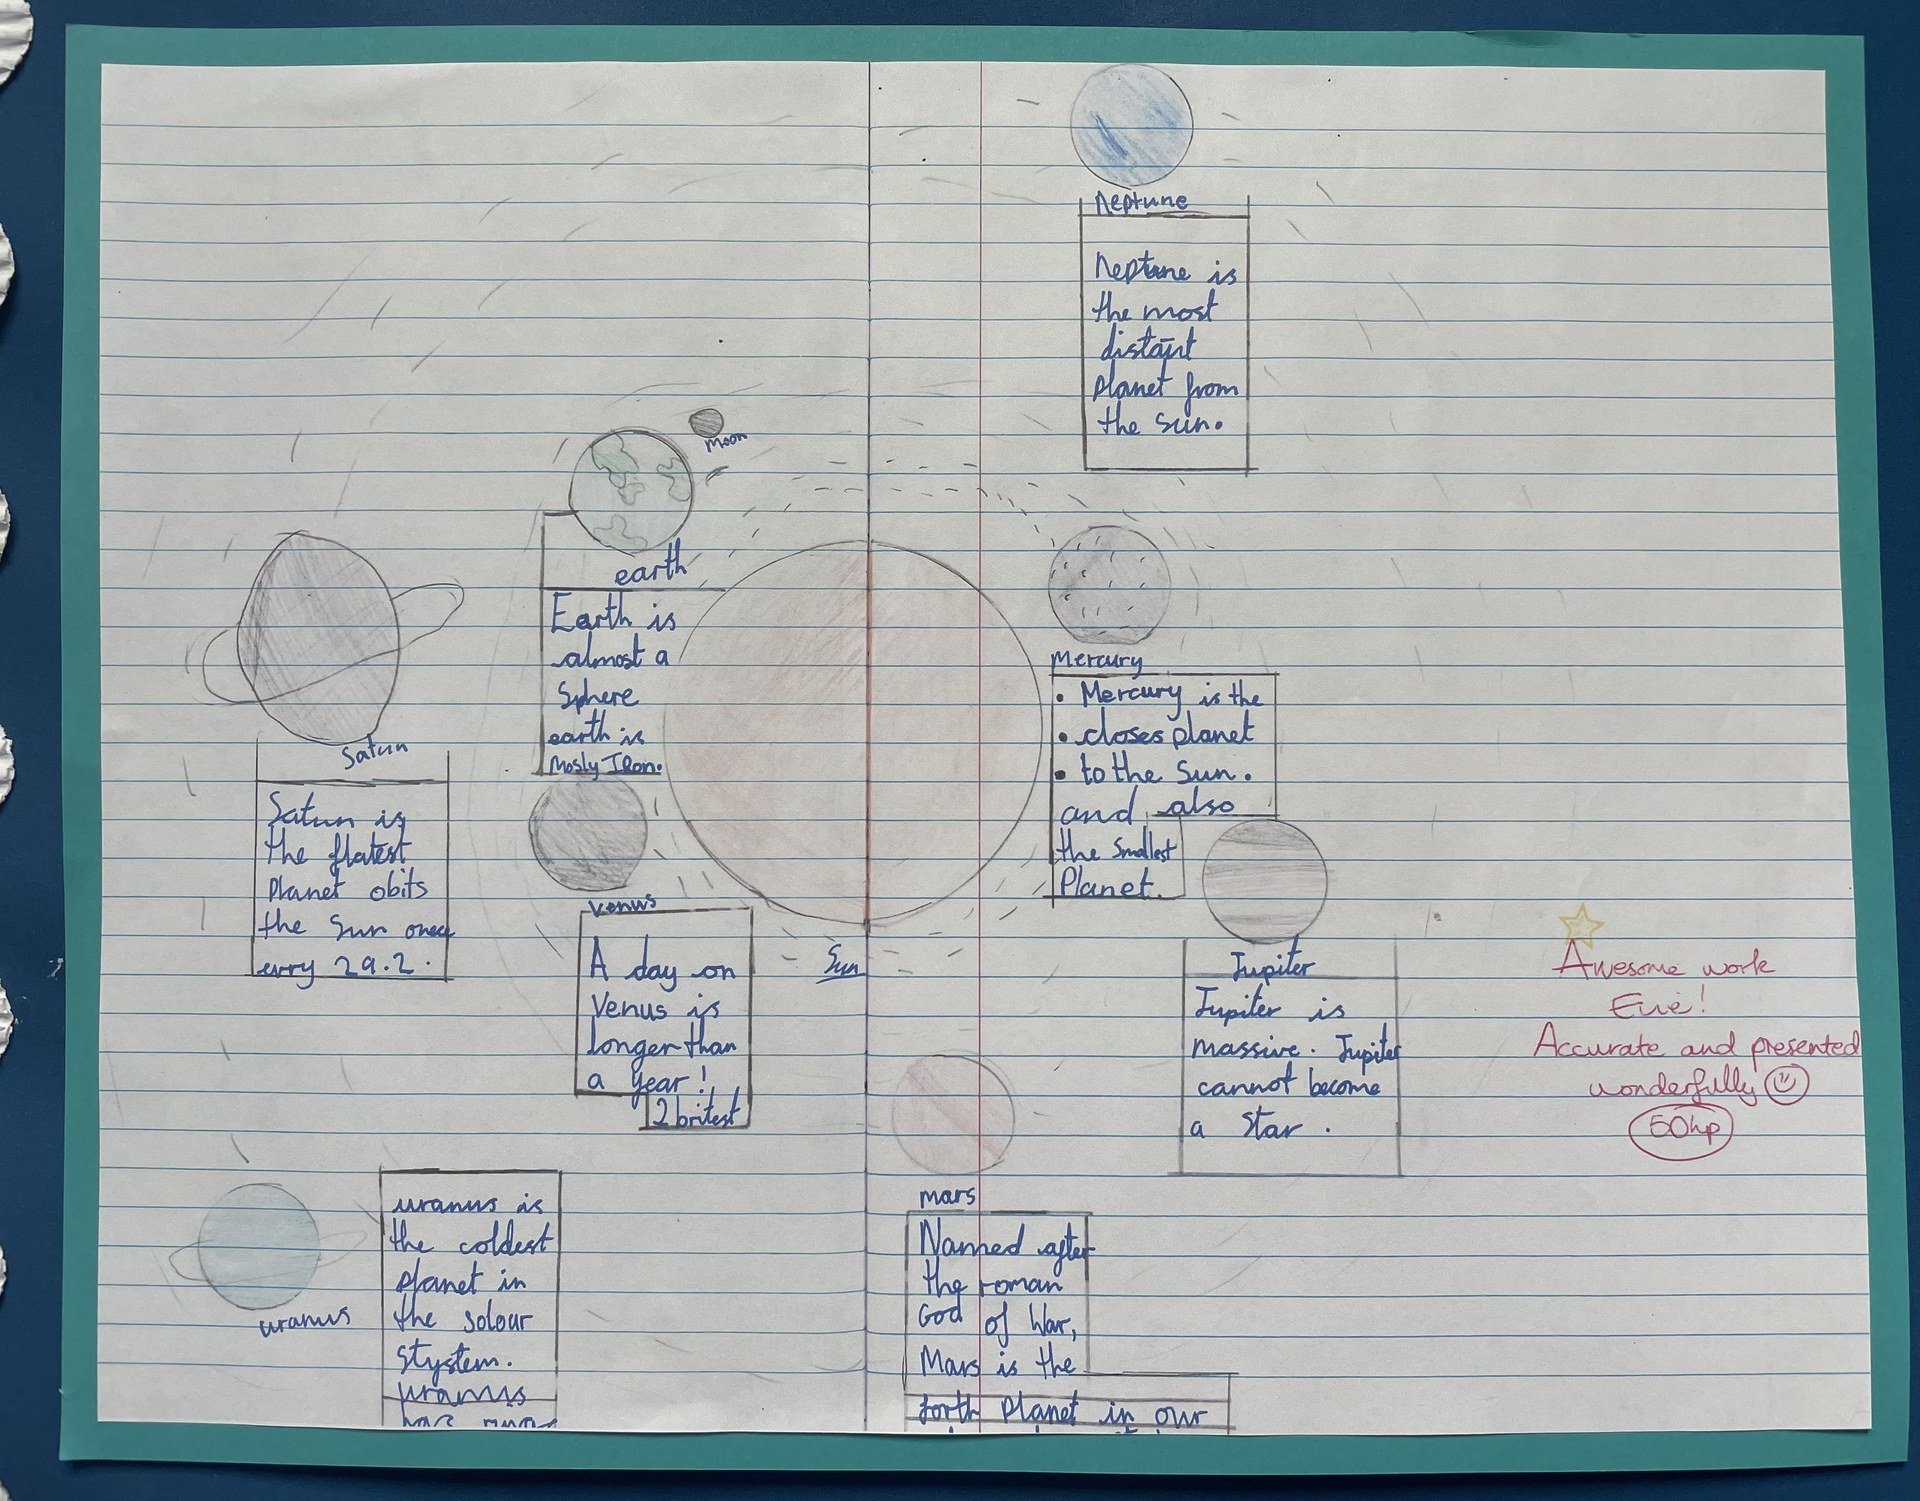 Neptune
Neptune is
the most
distant
planet from
the sun.
moon
earth
Earth is
almost a
Sphere
earth is
Mosly Iron.
Mercury
• Mercury is the
• closes planet
• to the sun.
and also
the smallest
Planet.
Saturn
Saturn is
the flatest
Planet obits
the sun once
evry 29.2.
Venus
A day on
Venus is
longer than
a year!
2 britest
Sun
Jupiter
Jupiter is
massive. Jupiter
cannot become
a Star.
Awesome work
Evie!
Accurate and presented
wonderfully
50hp
uranus
uranus is
the coldest
planet in
the solour
stystem.
uranus
mars
Named after
the roman
God of War,
Mars is the
forth planet in our